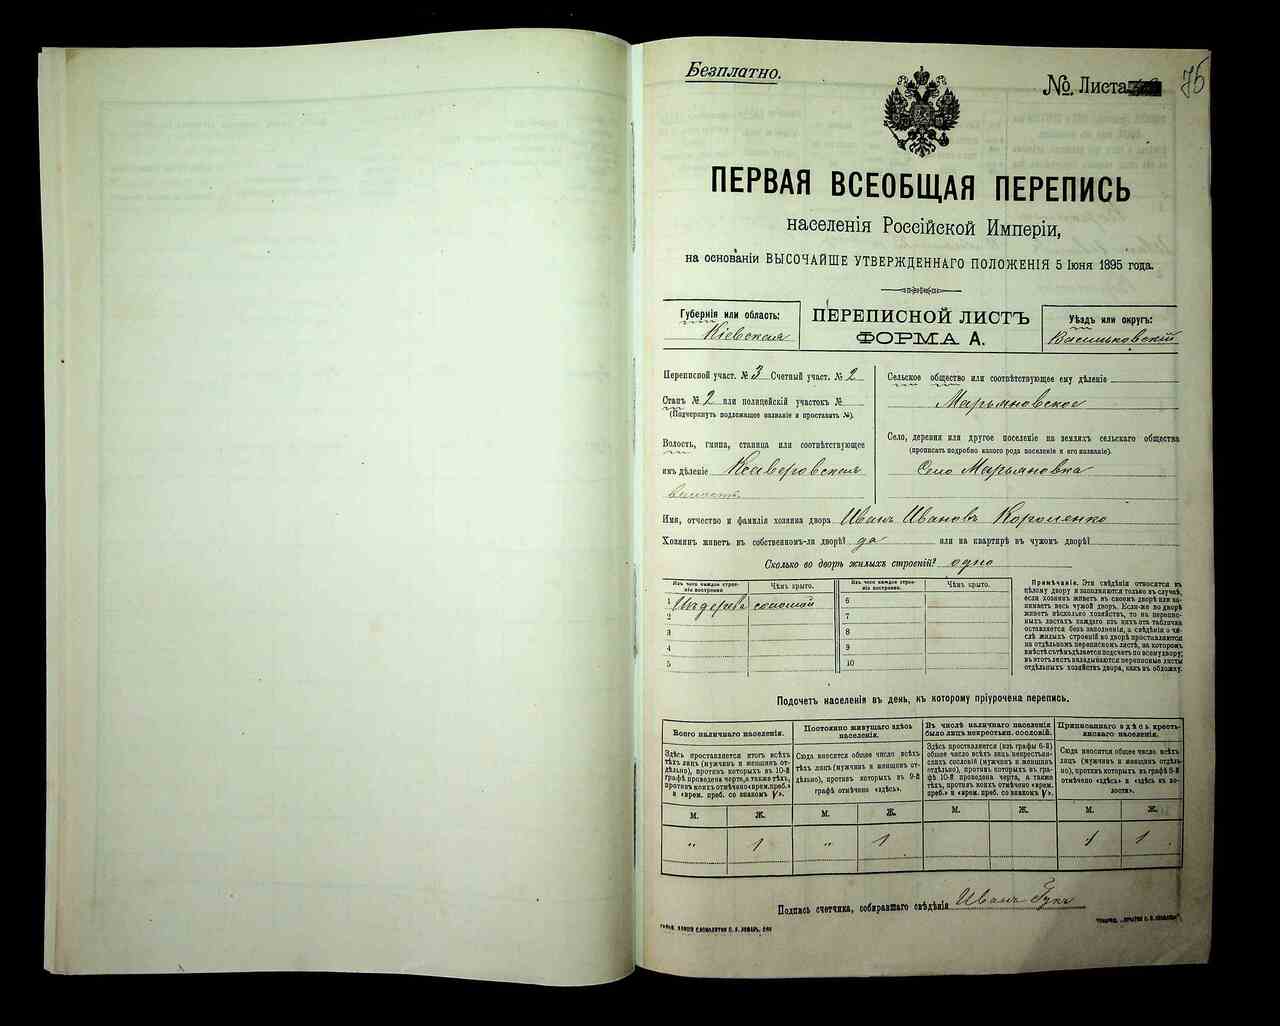 Безплатно.
№. Листа
75
ПЕРВАЯ ВСЕОБЩАЯ ПЕРЕПИСЬ
населенія Россійской Имперіи,
на основаніи ВЫСОЧАЙШЕ УТВЕРЖДЕННАГО ПОЛОЖЕНІЯ 5 Іюня 1895 года.
Губернія или область:
Кіевская
ПЕРЕПИСНОЙ ЛИСТЪ
ФОРМА А.
Уѣздъ или округъ:
Васильковскій
Переписной участ. № 3 Счетный участ. № 2
Станъ № 2 или полицейскій участокъ №
(Подчеркнуть подлежащее названіе и проставить №).
Волость, гмина, станица или соотвѣтствующее
имъ дѣленіе Ксаверовская
волость
Сельское общество или соотвѣтствующее ему дѣленіе
Марьяновское
Село, деревня или другое поселеніе на земляхъ сельскаго общества
(прописать подробно какого рода поселеніе и его названіе).
Село Марьяновка
Имя, отчество и фамилія хозяина двора Иванъ Ивановъ Короленко
Хозяинъ живетъ въ собственномъ-ли дворѣ? да или на квартирѣ въ чужомъ дворѣ?
Сколько во дворѣ жилыхъ строеній? одно
Изъ чего каждое строеніе построено. Чѣмъ крыто. Изъ чего каждое строеніе построено. Чѣмъ крыто.
1 Издерева соломой 6
2 7
3 8
4 9
5 10
Примѣчаніе. Эти свѣдѣнія относятся къ
цѣлому двору и заполняются только въ случаѣ,
если хозяинъ живетъ въ своемъ дворѣ или занимаетъ
весь чужой дворъ. Если-же во дворѣ
живетъ нѣсколько хозяйствъ, то на переписныхъ
листахъ каждаго изъ нихъ эта табличка
оставляется безъ заполненія, а свѣдѣнія о числѣ
жилыхъ строеній во дворѣ проставляются
на отдѣльномъ переписномъ листѣ, на которомъ
вмѣстѣ съ тѣмъ дѣлается подсчетъ по всему двору;
въ этотъ листъ вкладываются переписные листы
отдѣльныхъ хозяйствъ двора, какъ въ обложку.
Подсчетъ населенія въ день, къ которому пріурочена перепись.
Всего наличнаго населенія.
Здѣсь проставляется итогъ всѣхъ
тѣхъ лицъ (мужчинъ и женщинъ отдѣльно),
противъ которыхъ въ 10-й
графѣ проведена черта, а также тѣхъ,
противъ коихъ отмѣчено «врем. преб.»
и «врем. преб. со знакомъ V».
Постоянно живущаго здѣсь
населенія.
Сюда вносится общее число всѣхъ
тѣхъ лицъ (мужчинъ и женщинъ отдѣльно),
противъ которыхъ въ 9-й
графѣ отмѣчено «здѣсь».
Въ числѣ наличнаго населенія
было лицъ некрестьян. сословій.
Здѣсь проставляется (изъ графы 6-й)
общее число всѣхъ лицъ некрестьянскихъ
сословій (мужчинъ и женщинъ
отдѣльно), противъ которыхъ въ графѣ
10-й проведена черта, а также
тѣхъ, противъ коихъ отмѣчено «врем.
преб.» и «врем. преб. со знакомъ V».
Приписаннаго здѣсь крестьянскаго
населенія.
Сюда вносится общее число всѣхъ
лицъ (мужчинъ и женщинъ отдѣльно),
противъ которыхъ въ графѣ 8-й
отмѣчено «здѣсь» и «здѣсь въ волости».
М. Ж. М. Ж. М. Ж. М. Ж.
" 1 " 1 1 1
Подпись счетчика, собиравшаго свѣдѣнія Иванъ Гукъ